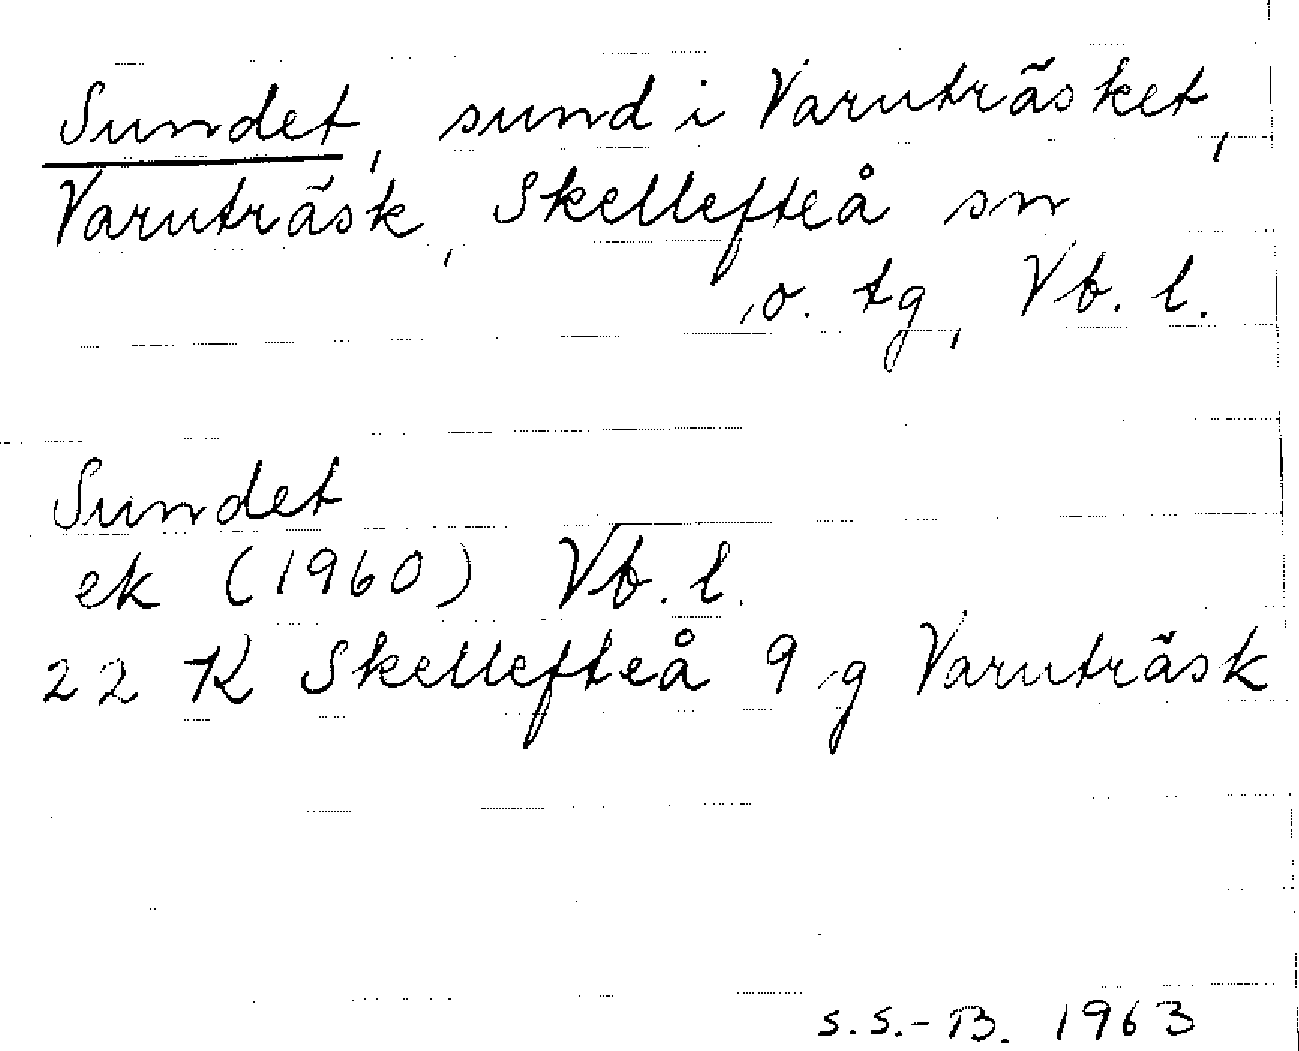 Sundet, sund i Varuträsket,
Varuträsk, Skellefteå sn
o. tg, Vb. l.
Sundet
ek (1960) Vb. l.
22 K Skellefteå 9 g Varuträsk
S.S.-B. 1963